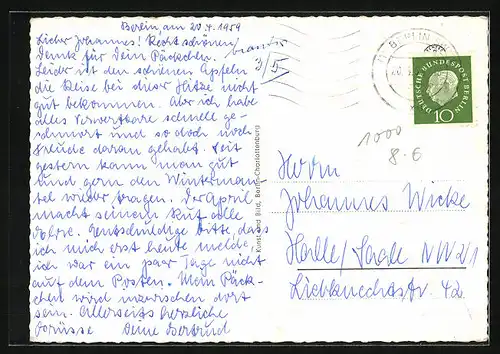 Berlin, am 20.4.1959
Lieber Johannes! Recht schönen
Dank für Dein Päckchen.
Leider ist den schönen Äpfeln
die Reise bei dieser Hitze nicht
gut bekommen. Aber ich habe
alles Verwertbare schnell ge-
schmort und so doch noch
Freude daran gehabt. Seit
gestern kann man gut
und gern den Winterman-
tel wieder tragen. Der April
macht seinem Ruf alle
Ehre. Entschuldige bitte, dass
ich mich erst heute melde,
ich war ein paar Tage nicht
auf dem Posten. Mein Päck-
chen wird inzwischen dort
sein. Allerseits herzliche
Grüsse Deine Gertrud
3/5
Kunst und Bild, Berlin-Charlottenburg
BERLIN
DEUTSCHE BUNDESPOST BERLIN
10
1000
8.-€
Herrn
Johannes Wicke
Halle/Saale NW21
Liebknechtstr. 42